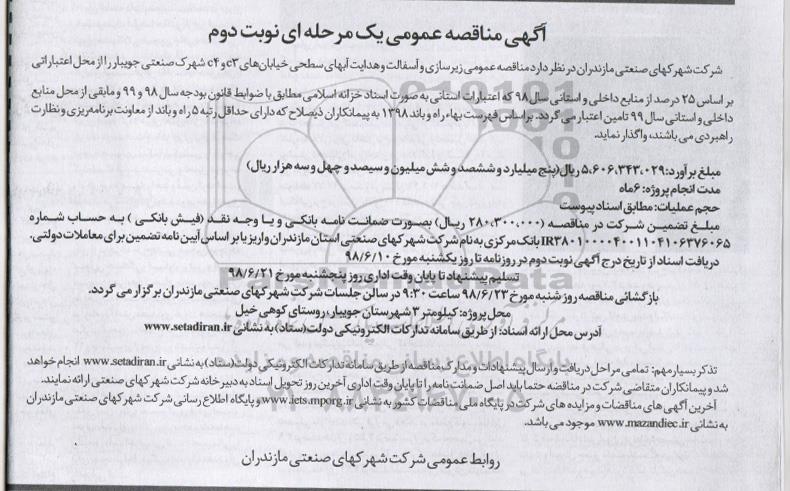 آگهی مناقصه عمومی یک مرحله ای نوبت دوم
شرکت شهرکهای صنعتی مازندران در نظر دارد مناقصه عمومی زیرسازی و آسفالت و هدایت آبهای سطحی خیابان‌های c۳ و c۴ شهرک صنعتی جویبار را از محل اعتباراتی
بر اساس ۲۵ درصد از منابع داخلی و استانی سال ۹۸ که اعتبارات استانی به صورت اسناد خزانه اسلامی مطابق با ضوابط قانون بودجه سال ۹۸ و ۹۹ و مابقی از محل منابع
داخلی و استانی سال ۹۹ تامین اعتبار می گردد. بر اساس فهرست بهاء راه و باند ۱۳۹۸ به پیمانکاران ذیصلاح که دارای حداقل رتبه ۵ راه و باند از معاونت برنامه‌ریزی و نظارت
راهبردی می باشند، واگذار نماید.
مبلغ برآورد: ۵،۶۰۶،۳۴۳،۰۲۹ ریال (پنج میلیارد و ششصد و شش میلیون و سیصد و چهل و سه هزار ریال)
مدت انجام پروژه: ۶ ماه
حجم عملیات: مطابق اسناد پیوست
مبلغ تضمین شرکت در مناقصه (۲۸۰،۳۰۰،۰۰۰ ریال) بصورت ضمانت نامه بانکی و یا وجه نقد (فیش بانکی ) به حساب شماره
IR۳۸۰۱۰۰۰۰۴۰۰۱۱۰۴۱۰۶۳۷۶۰۶۵ بانک مرکزی به نام شرکت شهرکهای صنعتی استان مازندران واریز یا بر اساس آیین نامه تضمین برای معاملات دولتی.
دریافت اسناد از تاریخ درج آگهی نوبت دوم در روزنامه تا روز یکشنبه مورخ ۹۸/۶/۱۰
تسلیم پیشنهاد تا پایان وقت اداری روز پنجشنبه مورخ ۹۸/۶/۲۱
بازگشائی مناقصه روز شنبه مورخ ۹۸/۶/۲۳ ساعت ۹:۳۰ در سالن جلسات شرکت شهرکهای صنعتی مازندران برگزار می گردد.
محل پروژه: کیلومتر ۳ شهرستان جویبار، روستای کوهی خیل
آدرس محل ارائه اسناد: از طریق سامانه تدارکات الکترونیکی دولت (ستاد) به نشانی www.setadiran.ir
تذکر بسیار مهم: تمامی مراحل دریافت و ارسال پیشنهادات و مدارک مناقصه از طریق سامانه تدارکات الکترونیکی دولت (ستاد) به نشانی www.setadiran.ir انجام خواهد
شد و پیمانکاران متقاضی شرکت در مناقصه حتما باید اصل ضمانت نامه را تا پایان وقت اداری آخرین روز تحویل اسناد به دبیرخانه شرکت شهرکهای صنعتی ارائه نمایند.
آخرین آگهی های مناقصات و مزایده های شرکت در پایگاه ملی مناقصات کشور به نشانی www.iets.mporg.ir و پایگاه اطلاع رسانی شرکت شهرکهای صنعتی مازندران
به نشانی www.mazandiec.ir موجود می باشد.
روابط عمومی شرکت شهرکهای صنعتی مازندران